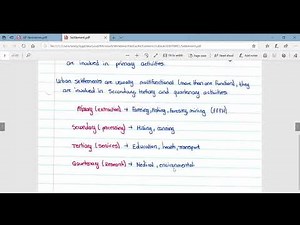 Settlement.pdf
are involved in primary activities.
Urban settlements are usually multifunctional (more than one function), they
are involved in secondary, tertiary and quaternary activities
Primary (extraction) → Farming, fishing, forestry, mining (FFFM)
Secondary (processing) → Mixing, canning
Tertiary (services) → Education, health, transport
Quaternary (research) → Medical, environmental